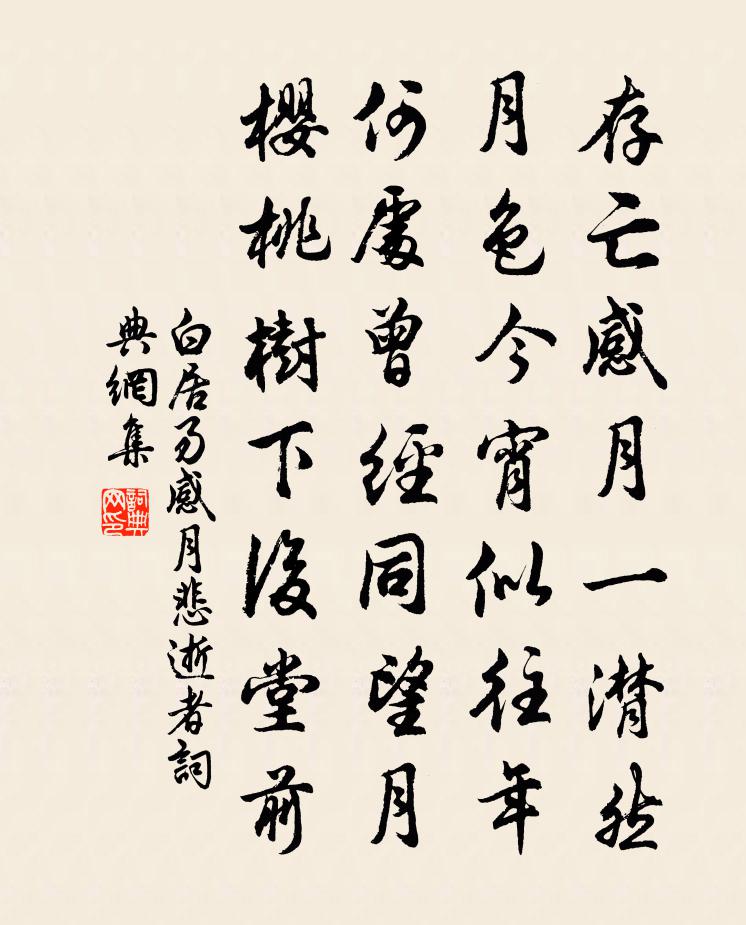 存亡感月一潸然
月色今宵似往年
何處曾經同望月
櫻桃樹下後堂前
白居易感月悲逝者詞
典網集
詞典
网印